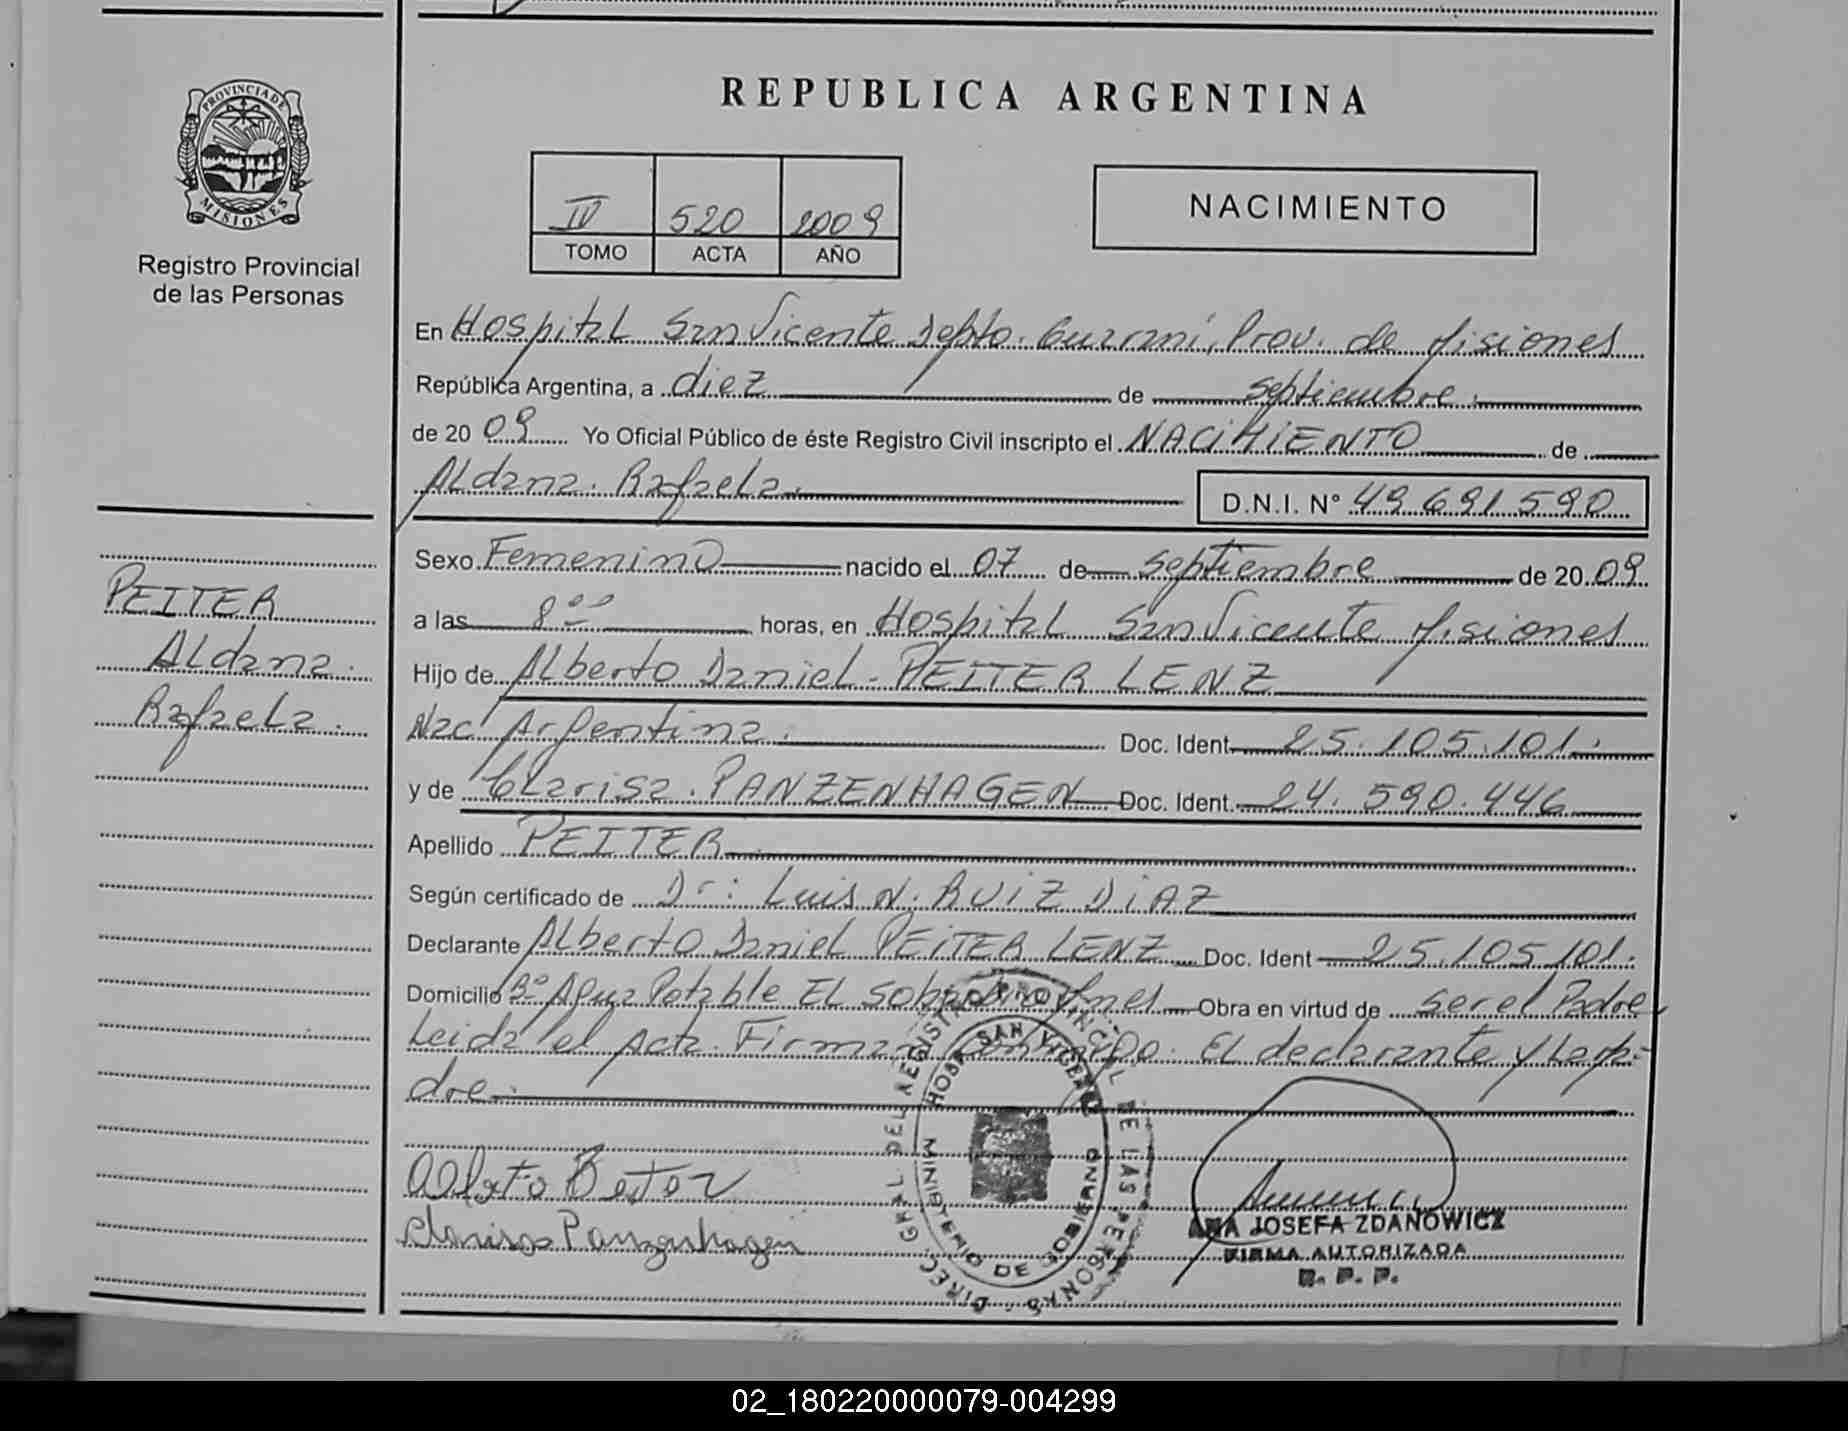 REPUBLICA ARGENTINA
PROVINCIA DE
MISIONES
Registro Provincial
de las Personas
IV 520 2009
TOMO ACTA AÑO
NACIMIENTO
En Hospital San Vicente Depto. Guarani, Prov. de Misiones
República Argentina, a diez de septiembre.
de 20 09 Yo Oficial Público de éste Registro Civil inscripto el NACIMIENTO de
Aldana. Rafaela. D.N.I. N° 49.691.590
Sexo Femenino nacido el 07 de septiembre de 20 09
a las 8⁰⁰ horas, en Hospital San Vicente Misiones
Hijo de Alberto Daniel - PEITER LENZ
Nac Argentina. Doc. Ident. 25.105.101.
y de Clarisa. PANZENHAGEN Doc. Ident. 24.590.446
Apellido PEITER
Según certificado de Dr: Luis N. RUIZ DiAZ
Declarante Alberto Daniel PEiTER LENZ Doc. Ident 25.105.101.
Domicilio Bº Agua Potable El Mnes Obra en virtud de ser el Padre
Leida el Acta. Firman El declarante y la ma-
dre.
PEITER
Aldana.
Rafaela.
Clarisa Panzenhagen
DIREC. GRAL DEL REGISTRO PROVINCIAL DE LAS PERSONAS
HOSP. SAN VICENTE
MINISTERIO DE GOBIERNO
ANA JOSEFA ZDANOWICZ
FIRMA AUTORIZADA
R. P. P.
02_180220000079-004299